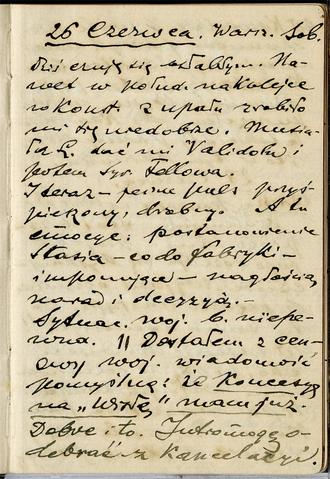 26 Czerwca. Warsz. Sob.
Dziś czuję się osłabłym. Na-
wet w połud. na kolejce
w Konst. z upału zrobiło
mi się niedobrze. Musia-
ła L. dać mi Validolu i
potem Syr. Fellowa.
I teraz – pewnie puls przyś-
pieszony, drobny. A tu
emocye: postanowienie
Stasia – co do fabryki –
imponujące – nagłością
narad i decyzyj. –
Sytuac. woj. b. niepe-
wna. || Dostałem z cen-
zury woj. wiadomość
pomyślną: iż Koncesyę
na „Wisłę” mam już.
Dobre i to. Jutro mogę o-
debrać z Kancelaryi.